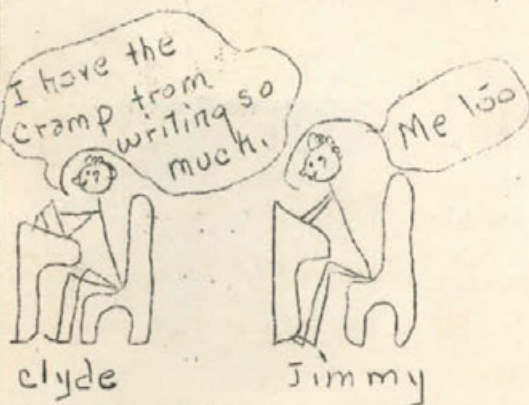 I have the
cramp from
writing so
much.
Me too
clyde
Jimmy